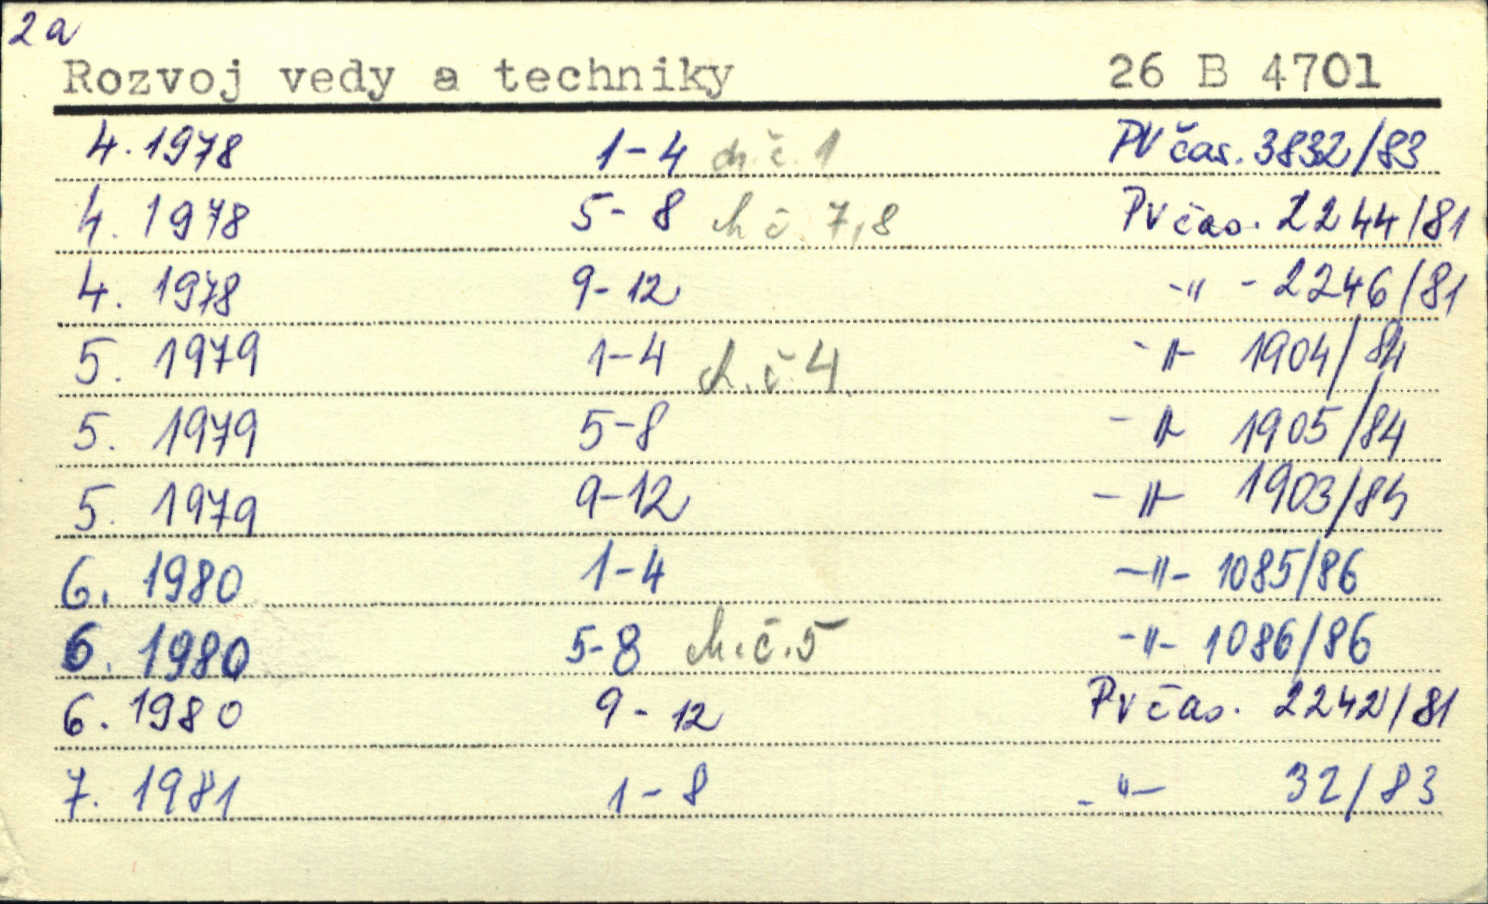 2a
Rozvoj vedy a techniky 26 B 4701
4. 1978 1-4 ch.č. 1 PV čas. 3832/83
4. 1978 5-8 ch č. 7,8 PV čas. 2244/81
4. 1978 9-12 -"- 2246/81
5. 1979 1-4 ch.č. 4 -"- 1904/84
5. 1979 5-8 -"- 1905/84
5. 1979 9-12 -"- 1903/84
6. 1980 1-4 -"- 1085/86
6. 1980 5-8 ch.č. 5 -"- 1086/86
6. 1980 9-12 PV čas. 2242/81
7. 1981 1-8 -"- 32/83